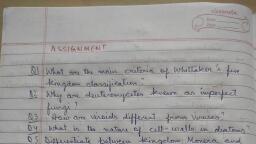 classmate
ASSIGNMENT
Q1 What are the main criteria of Whittaker's five
kingdom classification?
Q2 Why are deuteromycetes known as imperfect
fungi?
Q3 How are viroids different from viruses?
Q4 What is the nature of cell-walls in diatoms?
Q5 Differentiate between kingdom Monera and